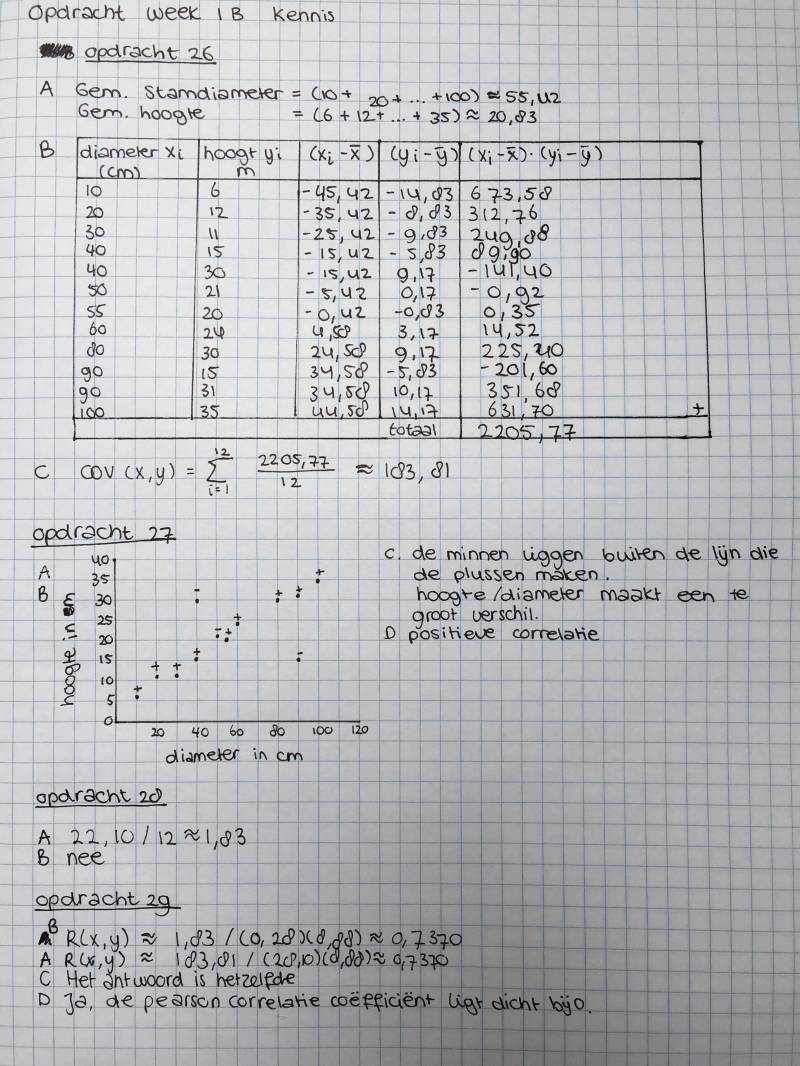 Opdracht week 1B Kennis
opdracht 26
A Gem. Stamdiameter = (10+ 20+ ... +100) ≈ 55,42
Gem. hoogte = (6+12+ ... + 35) ≈ 20,83
B diameter xi (cm) hoogt yi m (xi - x̄) (yi - ȳ) (xi - x̄)·(yi - ȳ)
10 6 -45,42 -14,83 673,58
20 12 -35,42 -8,83 312,76
30 11 -25,42 -9,83 249,88
40 15 -15,42 -5,83 89,90
40 30 -15,42 9,17 -141,40
50 21 -5,42 0,17 -0,92
55 20 -0,42 -0,83 0,35
60 24 4,58 3,17 14,52
80 30 24,58 9,17 225,40
90 15 34,58 -5,83 -201,60
90 31 34,58 10,17 351,68
100 35 44,58 14,17 631,70 +
totaal 2205,77
C COV (x,y) = 12 Σ i=1 2205,77 / 12 ≈ 183,81
opdracht 27
A
B
hoogte in m
40
35
30
25
20
15
10
5
0
20 40 60 80 100 120
diameter in cm
C. de minnen liggen buiten de lijn die
de plussen maken.
hoogte/diameter maakt een te
groot verschil.
D positieve correlatie
opdracht 28
A 22,10 / 12 ≈ 1,83
B nee
opdracht 29
B R(x,y) ≈ 1,83 / (0,28)(8,88) ≈ 0,7370
A R(x,y) ≈ 183,81 / (28,10)(8,88) ≈ 0,7370
C Het antwoord is hetzelfde
D Ja, de pearson correlatie coëfficiënt ligt dicht bij 0.